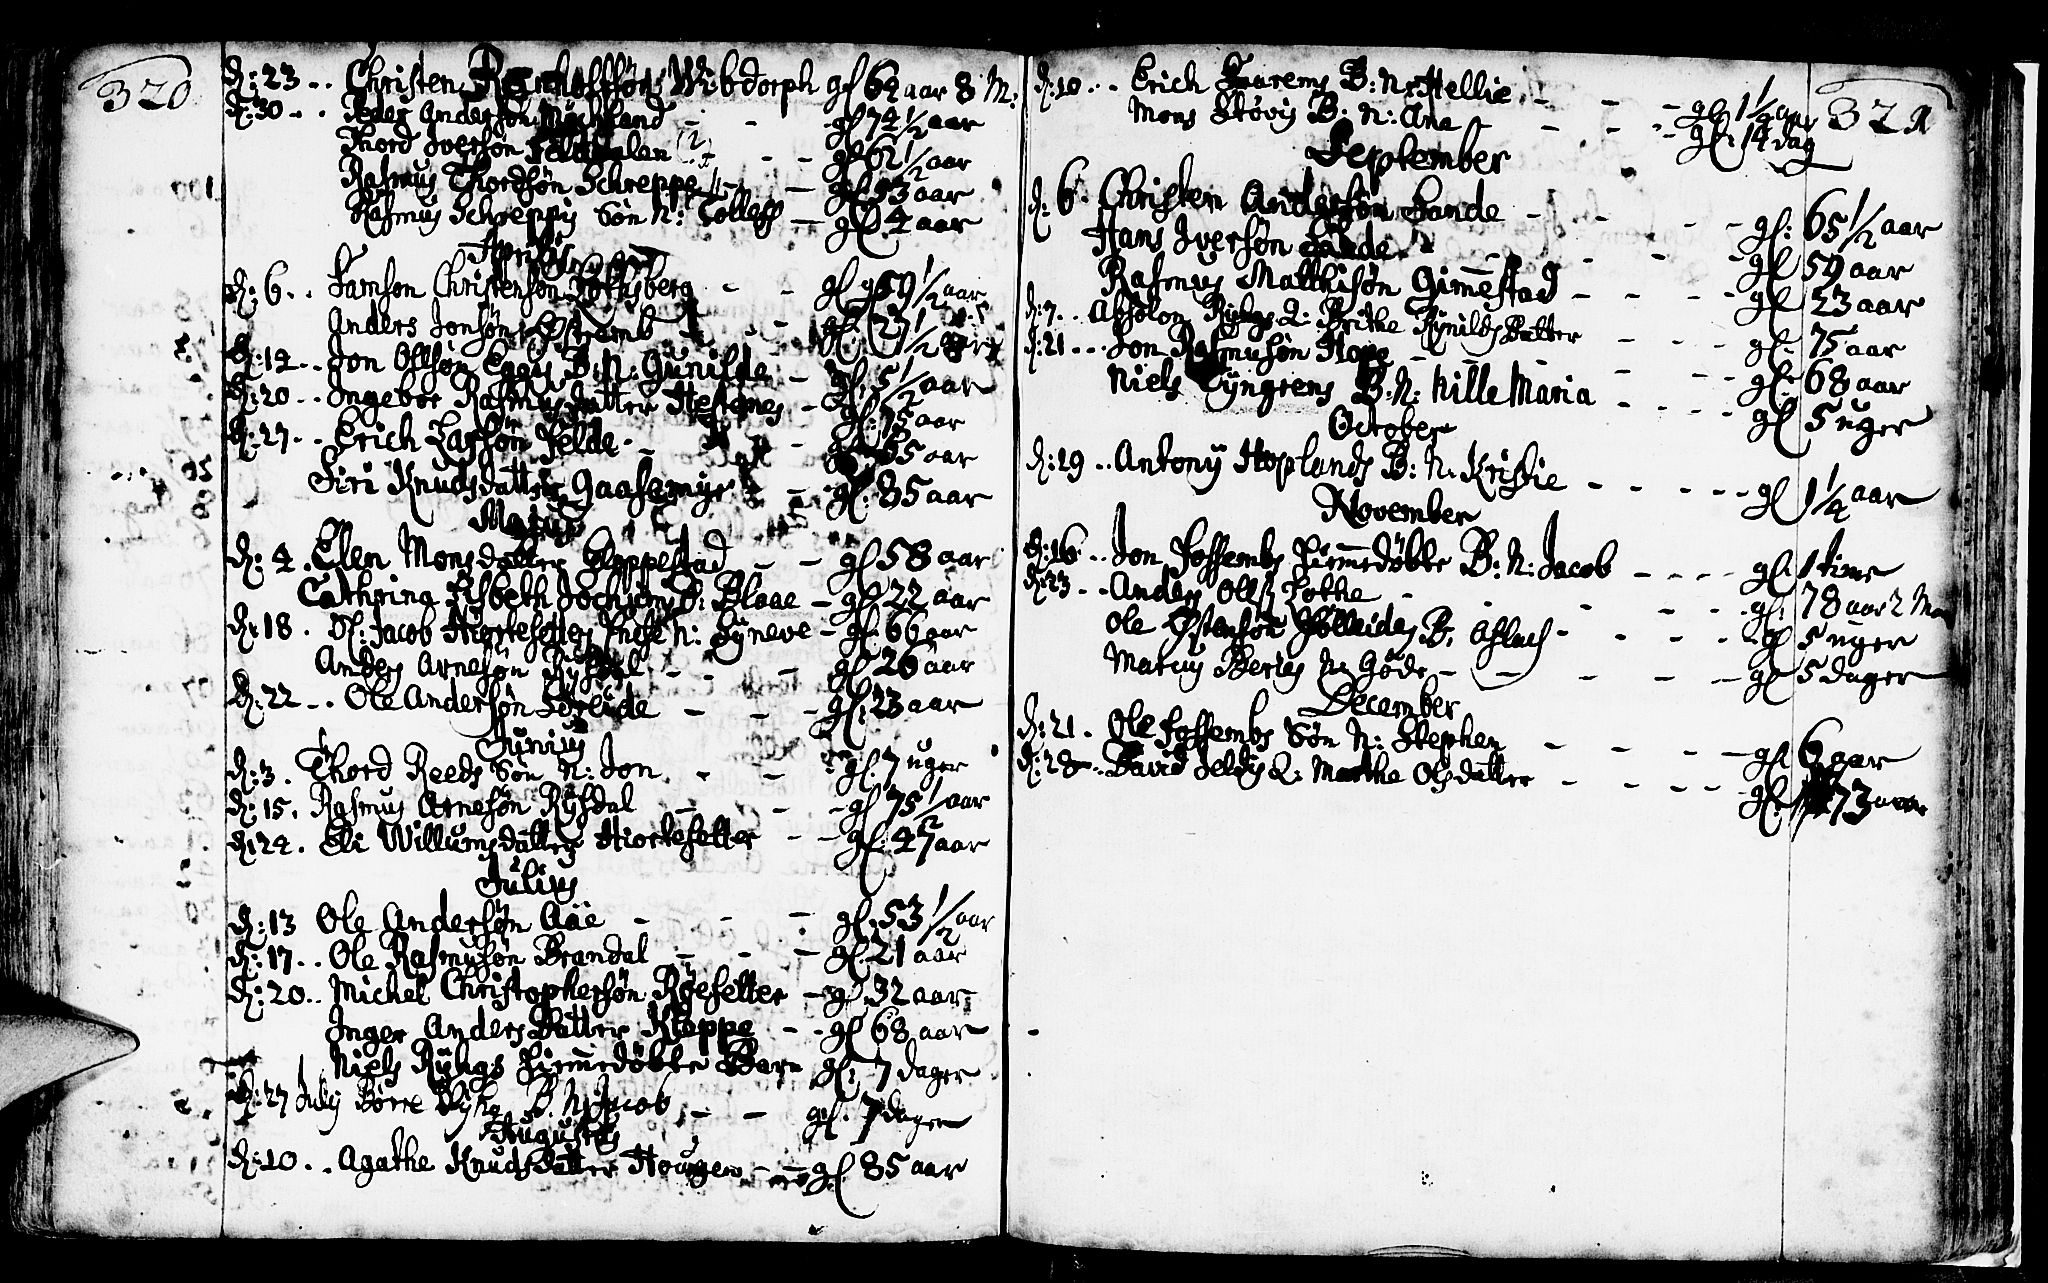 320
d: 23 .. Christen Wibdorph gl 64 aar 8 M:
d: 30 .. Peder Andersøn Myckland - - gl 74 1/2 aar
Thord Iversøn - - gl 62 1/2 aar
Rasmus Thordsøn Schreppe - gl 93 aar
Rasmus Schreppis Søn N: Tolless - gl. 4 aar
Aprilis
d: 6 .. Samson Christensøn - - gl 59 1/2 aar
Anders Jonsøn - gl. 27 1/2 aar
d: 14 .. Jon Ollsøn Eggis B: N: Gunilda - gl. 5 1/2 aar
d: 20 .. Ingebor Rasmusdatter Hestenes - gl. 75 aar
d: 27 .. Erich Larsøn Felde - - gl 55 aar
Siri Knudsdatter Gaasemyr - gl. 85 aar
Majus
d: 4 . Elen Monsdatter Gloppestad - - gl 58 aar
Cathrina Lisbeth Jochums D: Blaae - gl 22 aar
d: 18 . Sl: Jacob Hiortesetters N: Syneve - gl. 66 aar
Anders Arnesøn Rysdal - - gl 26 aar
d: 22 .. Ole Andersøn Søreide - - - gl: 23 aar
Junius
d: 3 . Thord Reeds Søn N: Jon - - gl. 7 uger
d: 15 . Rasmus Arnesøn Rysdal - - gl 75 1/2 aar
d: 24 . Eli Willumsdatter Hiortesetter - - gl: 47 aar
Julius
d: 13 Ole Andersøn Aae - - - gl. 53 1/2 aar
d: 17 .. Ole Rasmusøn Brandal - - - gl. 21 aar
d: 20 .. Michel Christophersøn Ryesetter - gl 32 aar
Inger Anders Datter Kleppe - - gl 68 aar
Niels Rygs Hiemedøbte Barn gl: 7 dager
d: 27 July Børre Ryhg B. N: Jacob - - gl. 7 dager
Augustus
d: 10 .. Agathe Knuds Datter Hougen - - gl. 85 aar
321
d: 10 .. Erich B: N: Hellie - - - gl. 1 1/2 aar
Mons Støvis B: N: Ana - - - gl: 14 dag
September
d: 6 . Christen Andersøn Sande - - - gl: 65 1/2 aar
Hans Iversøn Sande - - - gl 59 aar
Rasmus Matthisøn Gimestad - - - gl 23 aar
d: 7 .. Absolon Ryhgs Q: Brithe Rynilds Datter - - gl: 75 aar
d: 21 ... Jon Rasmusøn Hope - - - gl: 68 aar
Niels Tyngrens B: N: Kille Maria - - - gl 5 uger
October
d: 19 .. Antony Hoplands B: N: Kristie - - - gl 1 1/4 aar
November
d: 16 .. Jon Fossembs Hiemedøbte B: N: Jacob - - - gl. 1 time
d: 23 .. Anders Olls: Lothe - - - gl: 78 aar 2 Mon
Ole Østensøn B. Aslach - - - gl 5 uger
Matius N: Gøde - - - gl 5 dager
December
d: 21 . Ole Fossembs Søn N: Stephen - - - gl 6 aar
d: 28 .. David Feldis Q: Marthe Olsdatter - - - gl. 73 aar